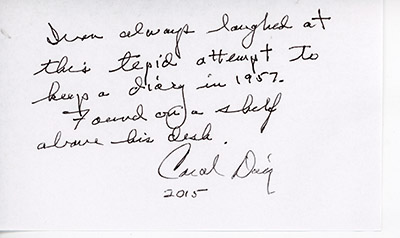 always laughed at
this tepid attempt to
keep a diary in 1957.
Found on a shelf
above his desk.
Carol
2015